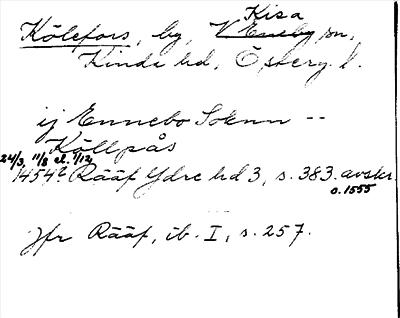 Kisa
Kölefors, by, V Eneby sn,
Kinda hd, Österg. l.
ij Ennebo Soknn --
Köllpås
24/3, 11/8 el. 9/12
1454? Rääf Ydre hd 3, s. 383. avskr.
o. 1555
Jfr Rääf, ib. I, s. 257.